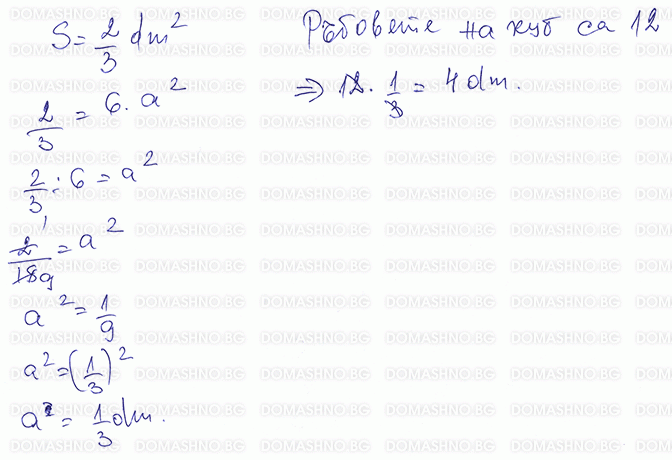 S = 2/3 dm²
2/3 = 6. a²
2/3 : 6 = a²
2/18 9 = a²
a² = 1/9
a² = (1/3)²
a = 1/3 dm.
Ръбовете на куб са 12
⇒ 12. 1/3 = 4 dm.
DOMASHNO.BG